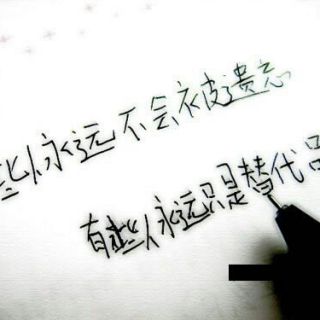 些人永远不会被遗忘
有些人永远只是替代品